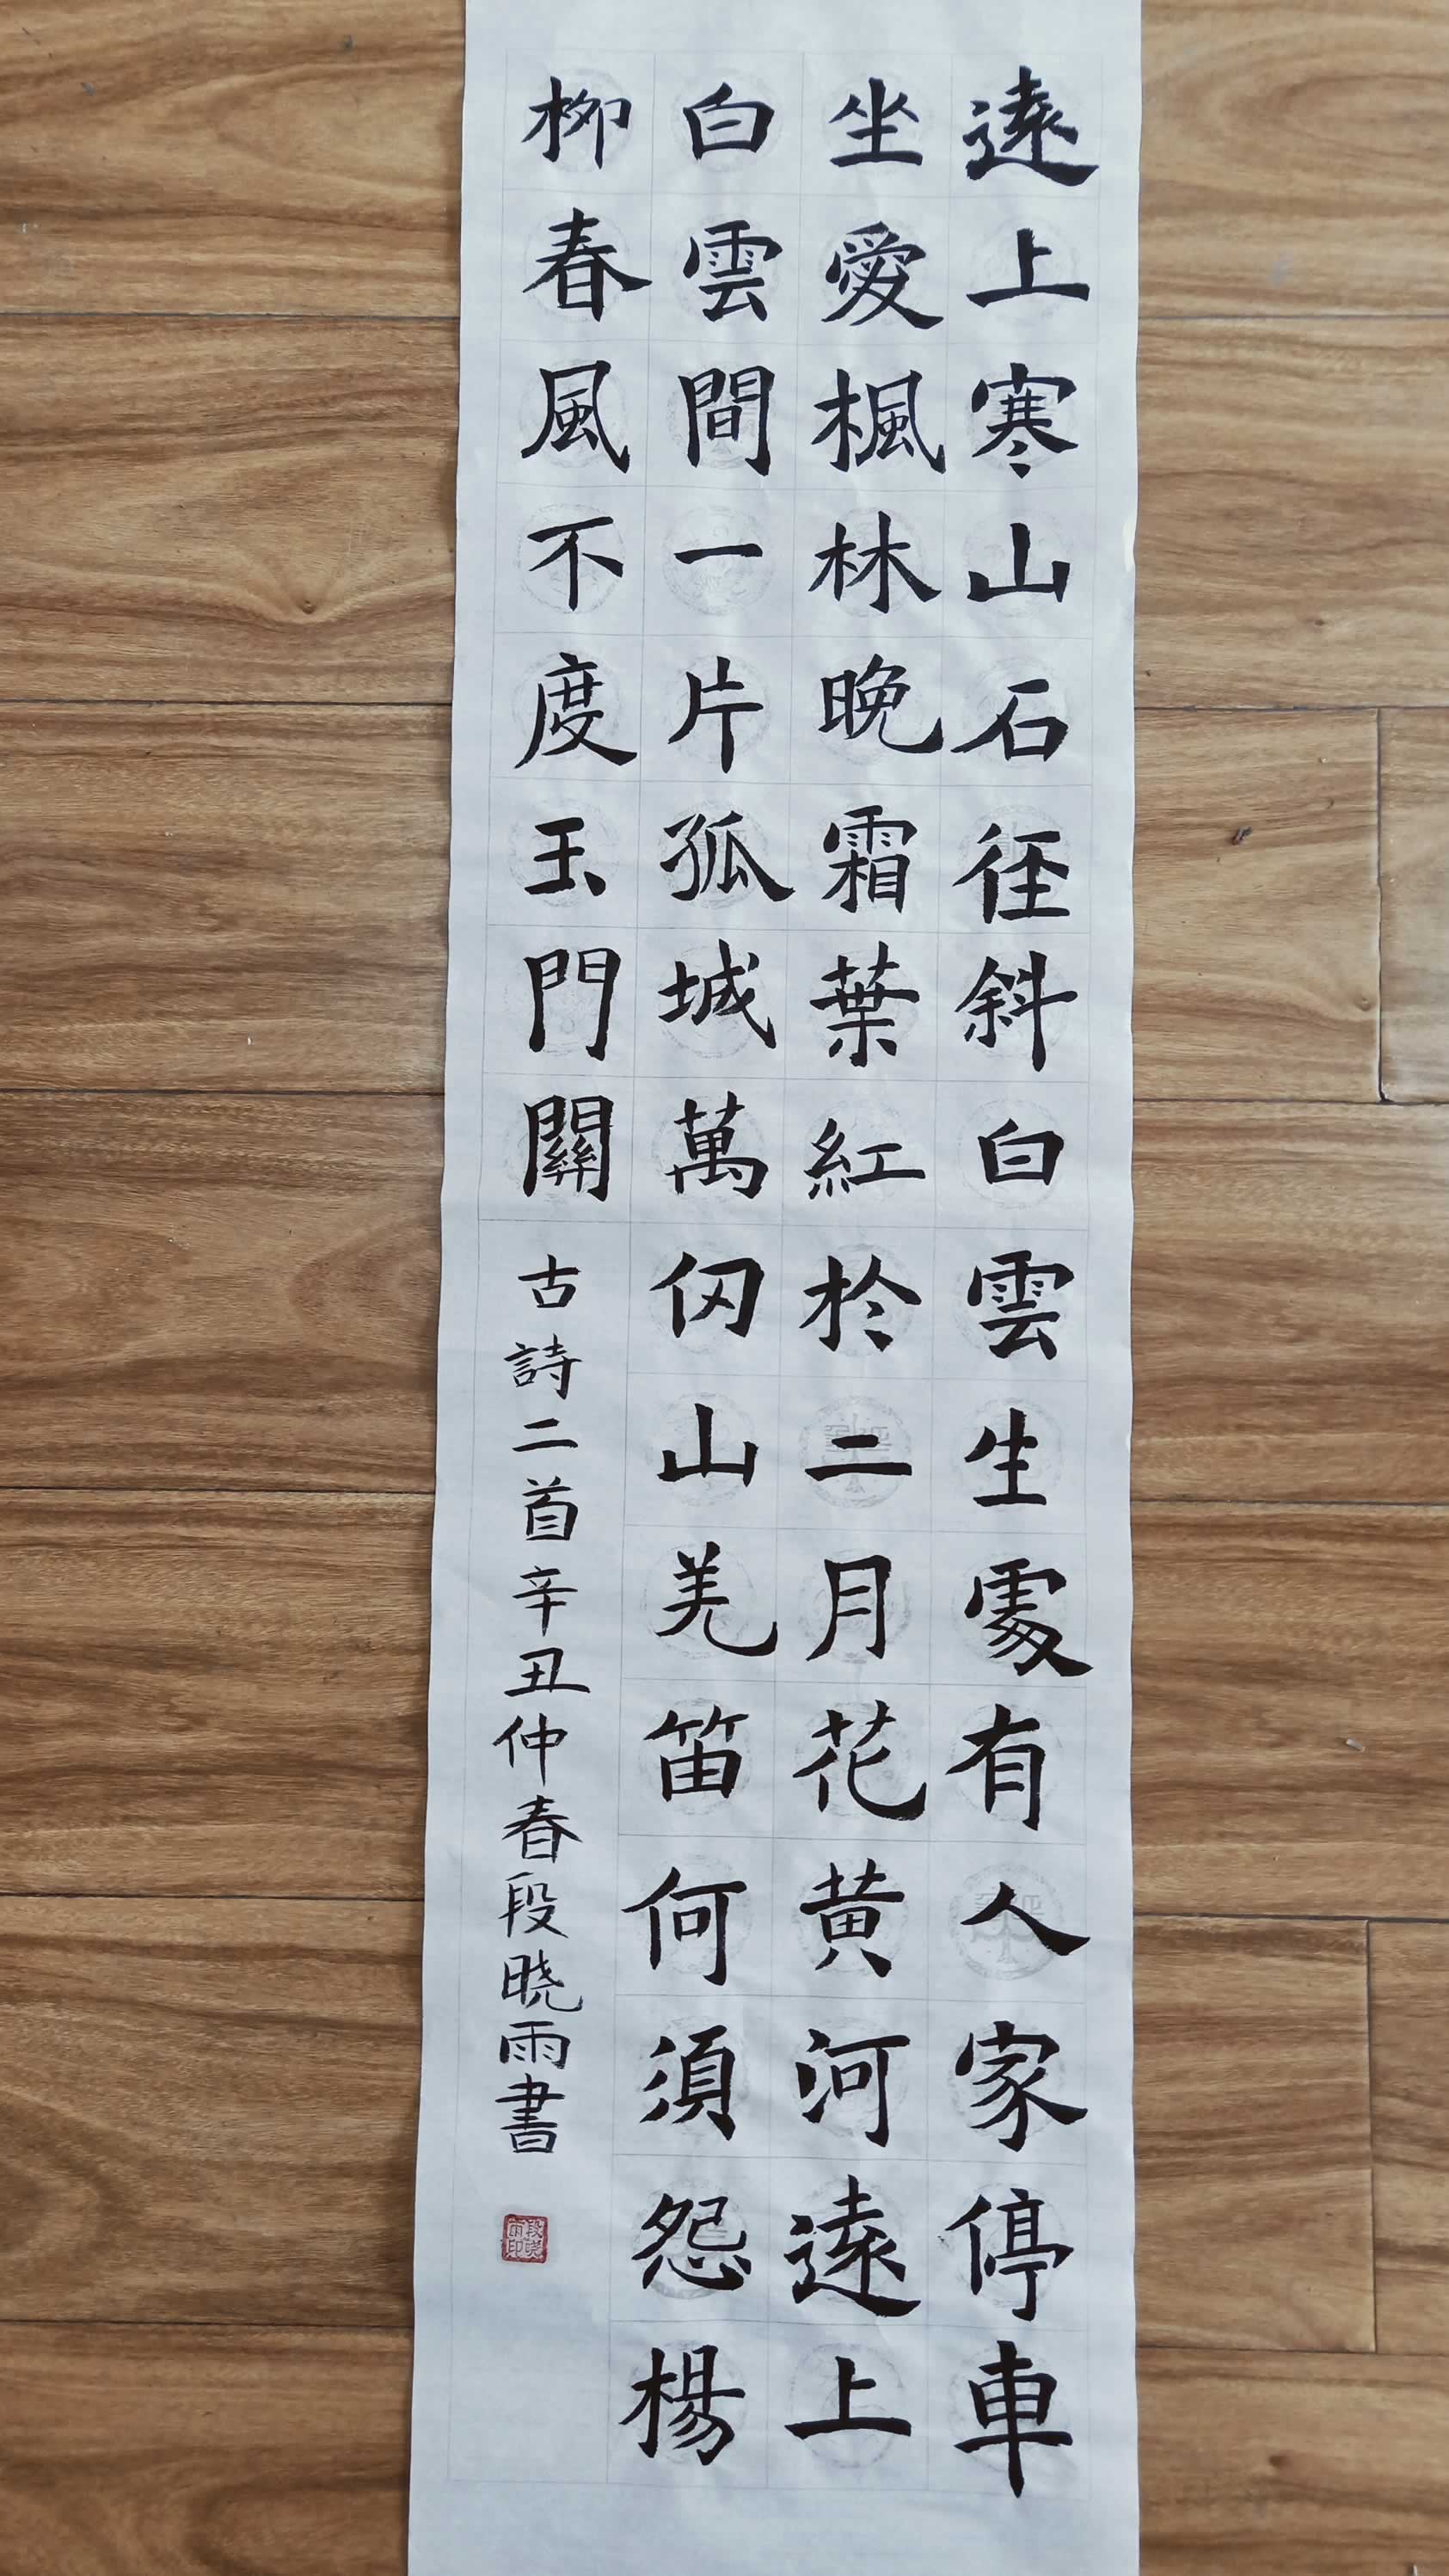 遠上寒山石徑斜白雲生處有人家停車
坐愛楓林晚霜葉紅於二月花黃河遠上
白雲間一片孤城萬仞山羌笛何須怨楊
柳春風不度玉門關
古詩二首辛丑仲春段晓雨書
段晓雨印